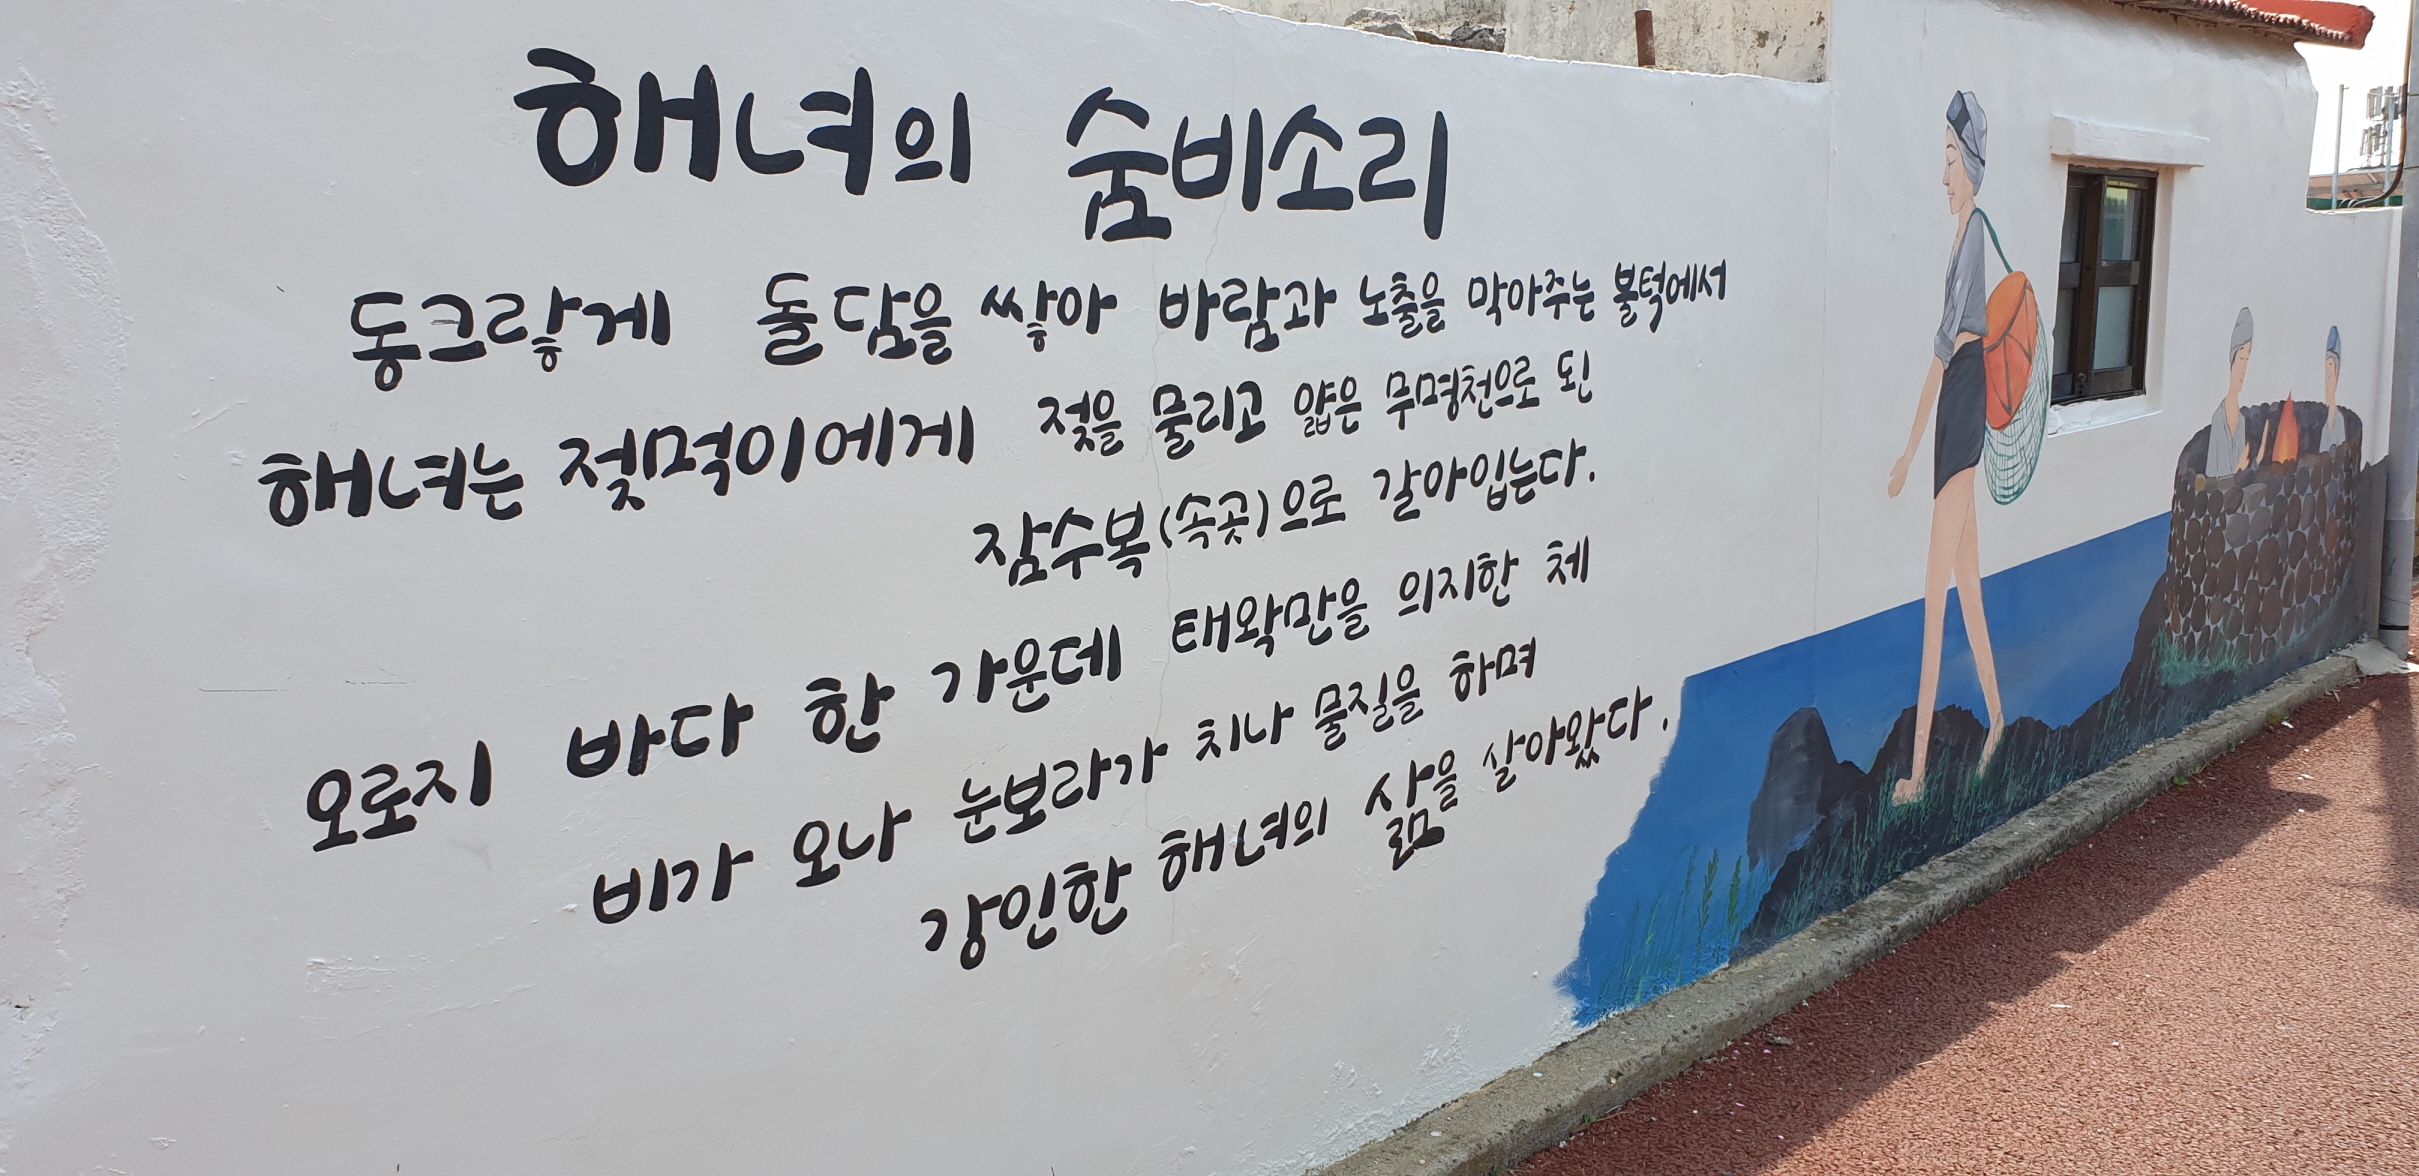 해녀의 숨비소리
동그랗게 돌담을 쌓아 바람과 노출을 막아주는 불턱에서
해녀는 젖먹이에게 젖을 물리고 얇은 무명천으로 된
잠수복(속곳)으로 갈아입는다.
오로지 바다 한 가운데 태왁만을 의지한 체
비가 오나 눈보라가 치나 물질을 하며
강인한 해녀의 삶을 살아왔다.